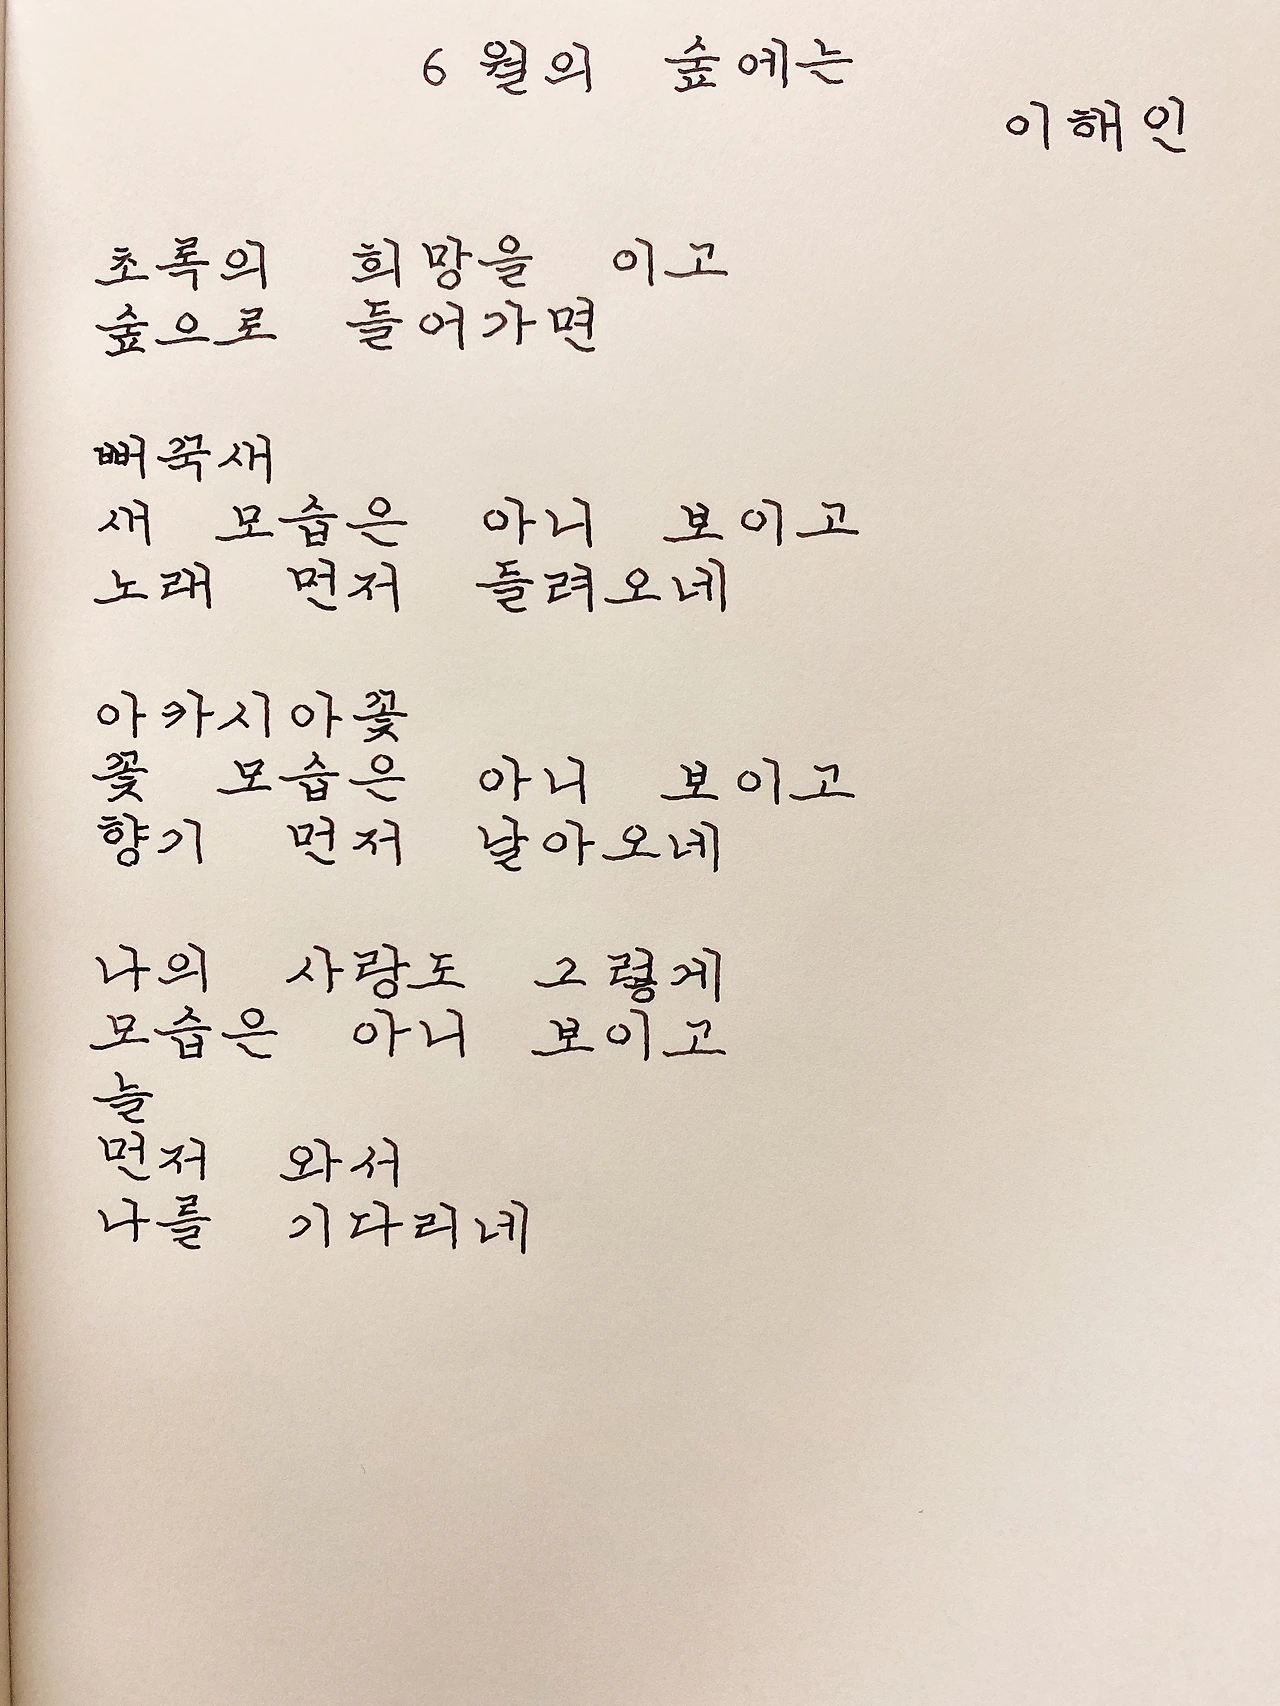 6월의 숲에는
이해인
초록의 희망을 이고
숲으로 들어가면
뻐꾹새
새 모습은 아니 보이고
노래 먼저 들려오네
아카시아꽃
꽃 모습은 아니 보이고
향기 먼저 날아오네
나의 사랑도 그렇게
모습은 아니 보이고
늘
먼저 와서
나를 기다리네